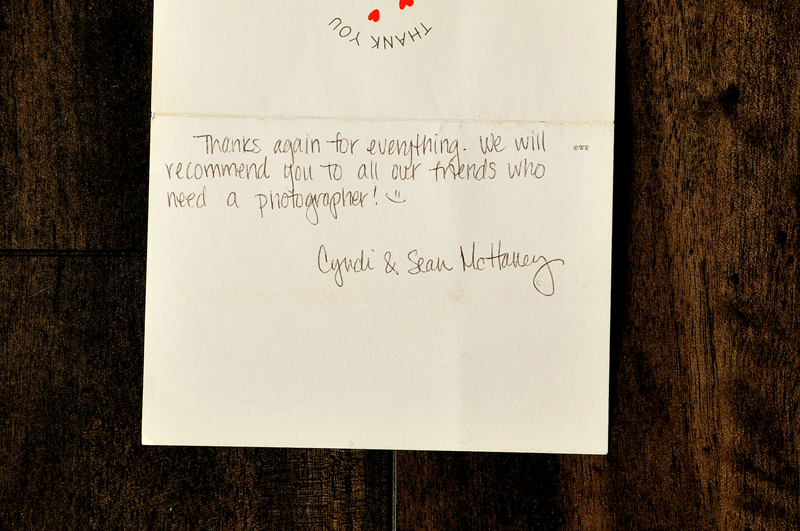 THANK YOU
Thanks again for everything. We will
©WR
recommend you to all our friends who
need a photographer! :)
Cyndi & Sean McHaney